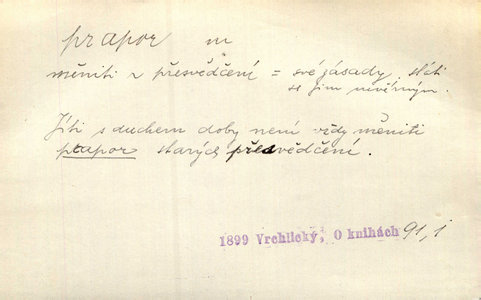 prapor m
měniti p. přesvědčení = své zásady, státi
se jim nevěrným.
Jíti s duchem doby není vždy měniti
prapor starých přesvědčení.
1899 Vrchlický, O knihách 91, 1